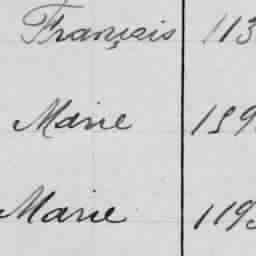 François 113
Marie 119
Marie 1193